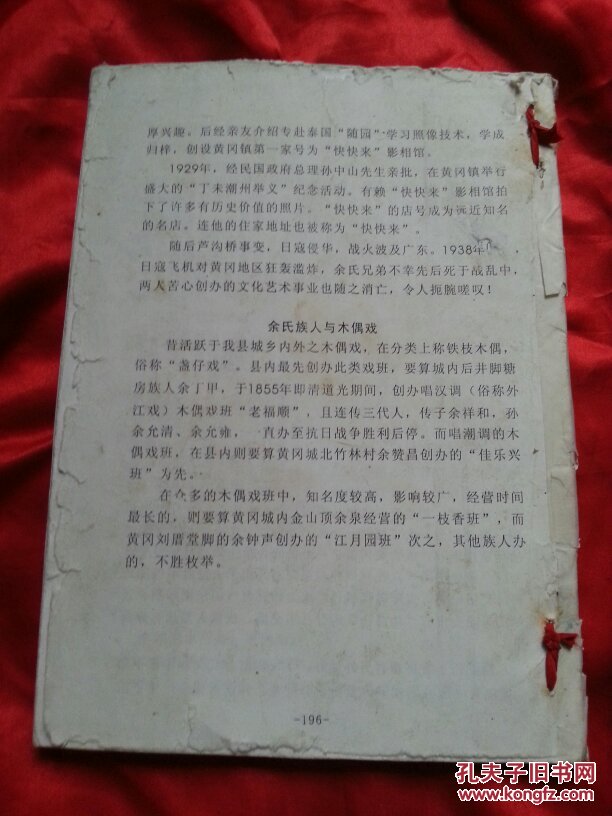 厚兴趣。后经亲友介绍专赴泰国“随园”学习照像技术，学成
归梓，创设黄冈镇第一家号为“快快来”影相馆。
1929年，经民国政府总理孙中山先生亲批，在黄冈镇举行
盛大的“丁未潮州举义”纪念活动。有赖“快快来”影相馆拍
下了许多有历史价值的照片。“快快来”的店号成为远近知名
的名店。连他的住家地址也被称为“快快来”。
随后芦沟桥事变，日寇侵华，战火波及广东。1938年
日寇飞机对黄冈地区狂轰滥炸，余氏兄弟不幸先后死于战乱中，
两人苦心创办的文化艺术事业也随之消亡，令人扼腕嗟叹！
余氏族人与木偶戏
昔活跃于我县城乡内外之木偶戏，在分类上称铁枝木偶，
俗称“盏仔戏”。县内最先创办此类戏班，要算城内后井脚糖
房族人余丁甲，于1855年即清道光期间，创办唱汉调（俗称外
江戏）木偶戏班“老福顺”，且连传三代人，传子余祥和，孙
余允清、余允雍，一直办至抗日战争胜利后停。而唱潮调的木
偶戏班，在县内则要算黄冈城北竹林村余赞昌创办的“佳乐兴
班”为先。
在众多的木偶戏班中，知名度较高，影响较广，经营时间
最长的，则要算黄冈城内金山顶余泉经营的“一枝香班”，而
黄冈刘厝堂脚的余钟声创办的“江月园班”次之，其他族人办
的，不胜枚举。
-196-
孔夫子旧书网
www.kongfz.com